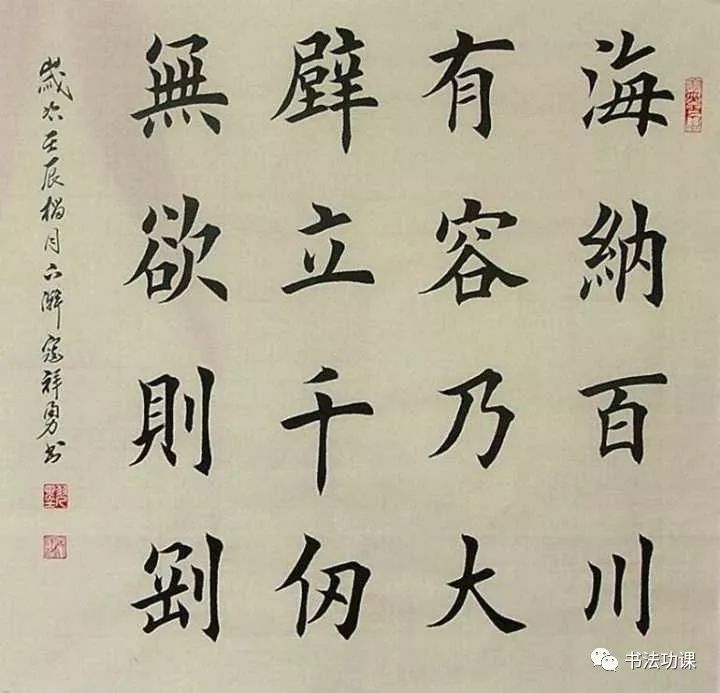 海納百川
有容乃大
壁立千仞
無欲則剛
歲次壬辰榴月六澥寇祥勇書
书法功课